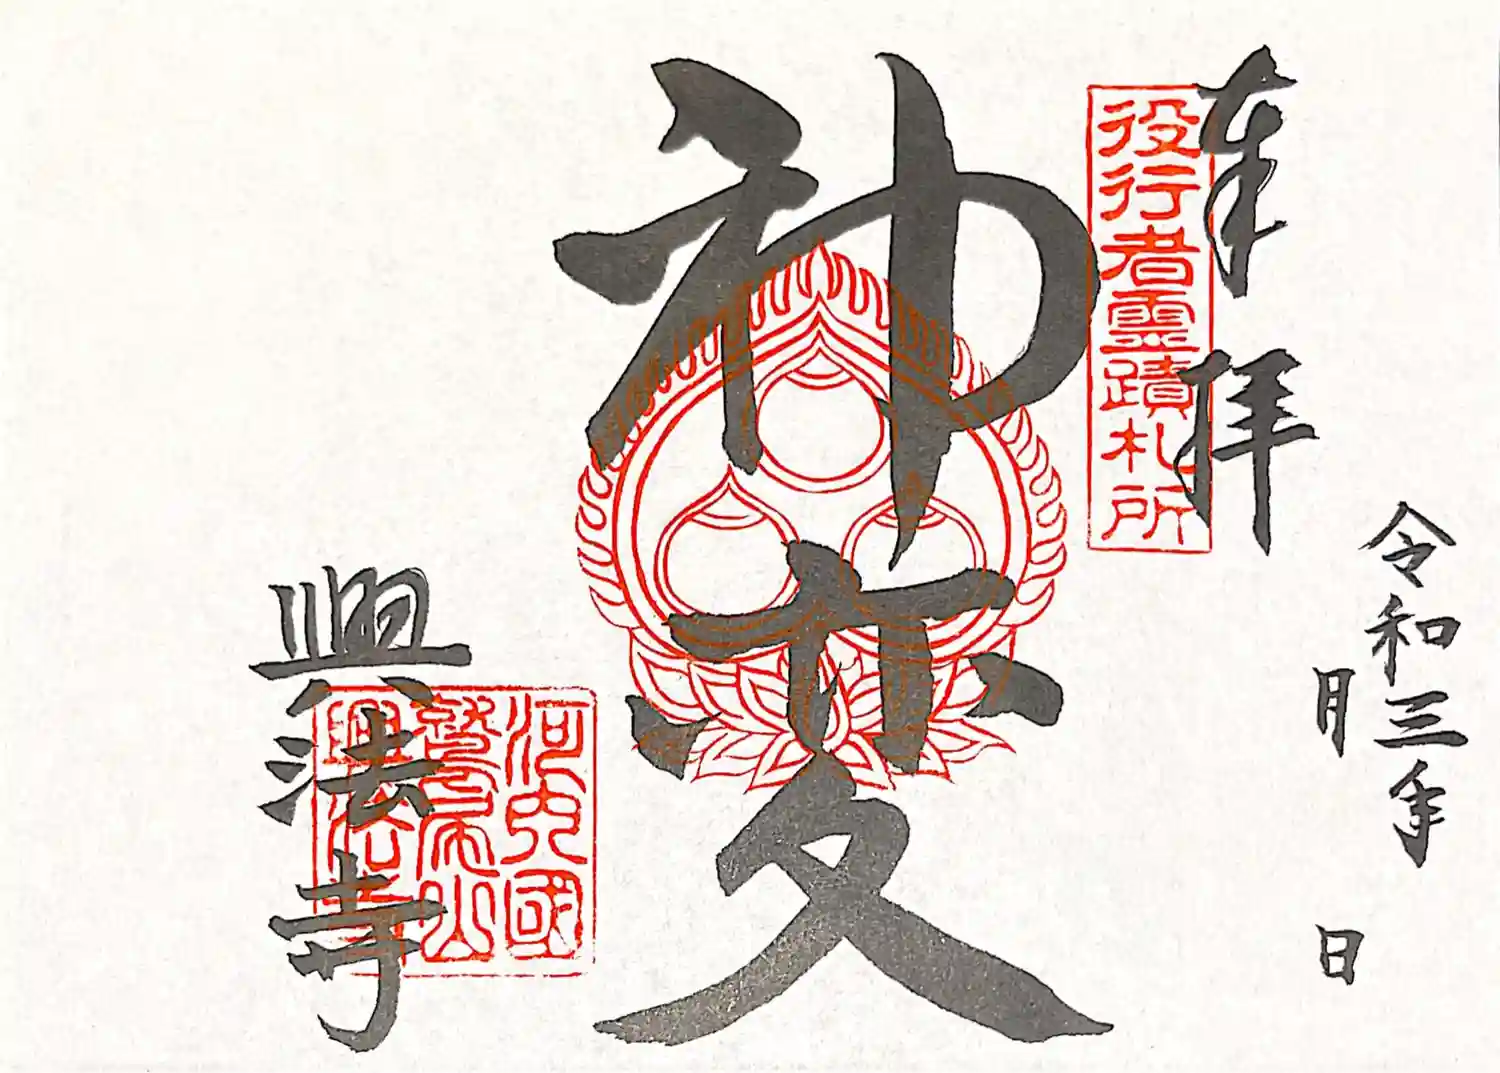 奉拝
役行者霊蹟札所
令和三年
月 日
神変
河内國
鷲尾山
興法寺
興法寺